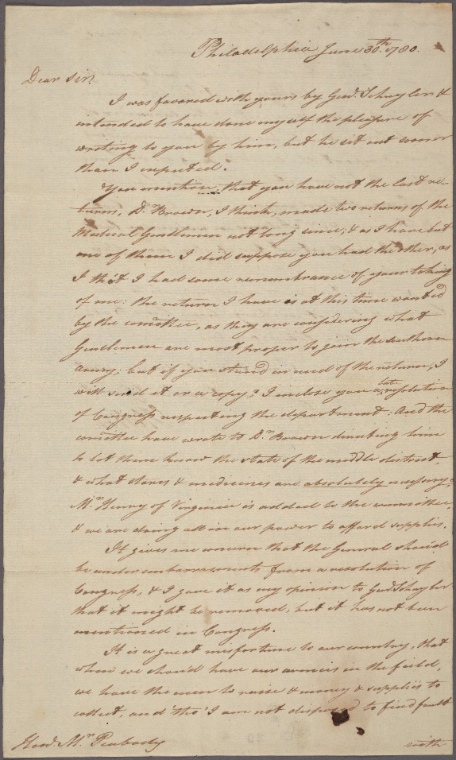 Philadelphia June 30th. 1780.
Dear Sir
I was favored with yours by Genl. Schuyler &
intended to have done myself the pleasure of
writing to you by him, but he set out sooner
than I expected.
You mention, that you have not the last re-
turns, Dr. Brown, I think, made two returns of the
Medical Gentlemen not long since, & as I have but
one of them I did suppose you had the other, as
I tho't I had some remembrance of your taking
of one: the return I have is at this time wanted
by the comttee, as they are considering what
Gentlemen are most proper to join the southern
army; but if you stand in need of the return, I
will send it or a copy. I inclose you a late resolution
of Congress respecting the department. And the
comttee have wrote to Dr. Brown directing him
to let them know the state of the middle district,
& what stores & medicines are absolutely necessary:
Mr. Henry of Virginia is added to the committee,
& we are doing all in our power to afford supplies.
It gives me concern that the General should
be under embarrassments from a resolution of
Congress, & I gave it as my opinion to Genl. Schuyler
that it might be removed, but it has not been
mentioned in Congress.
It is a great misfortune to our country, that
when we should have our armies in the field,
we have the men to raise & money & supplies to
collect, and tho' I am not disposed to find fault
Honl. Mr. Peabody
with